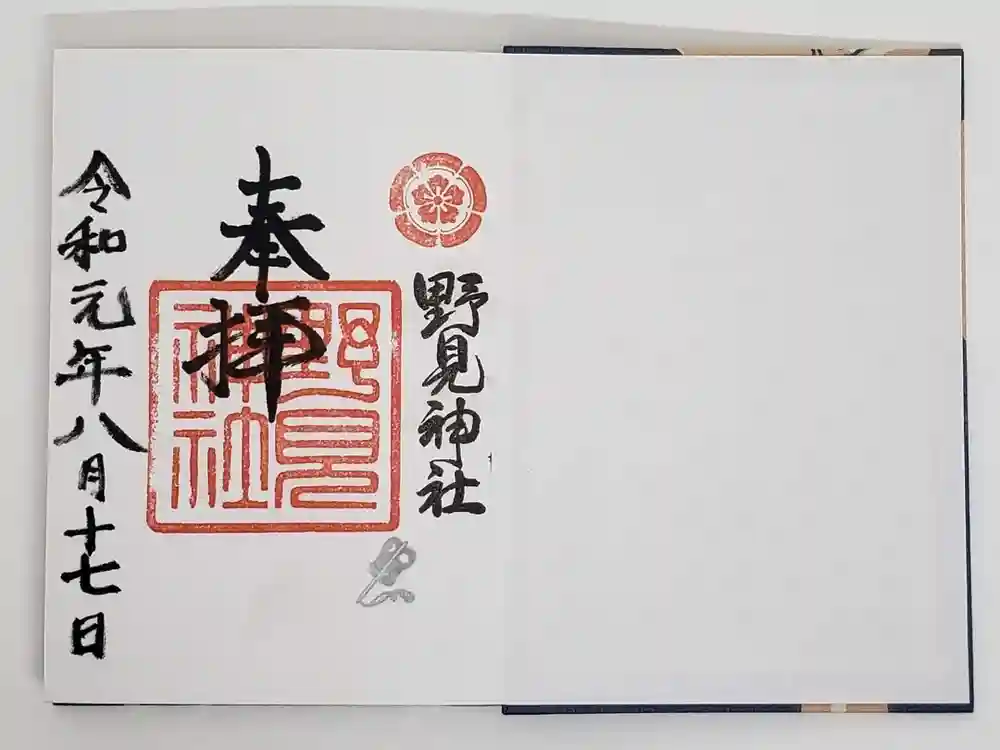 野見神社
奉拝
野見神社
令和元年八月十七日